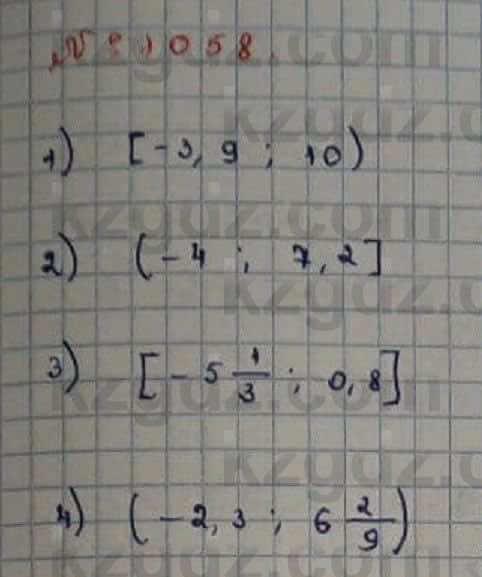 № 1058.
1) [-3,9 ; 10)
2) (-4 ; 7,2]
3) [-5 1/3 ; 0,8]
4) (-2,3 ; 6 2/9)
kzgdz.com